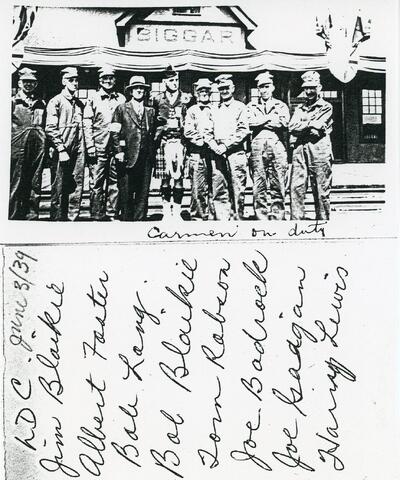 BIGGAR
Carmen on duty
L.D.C. June 3/39
Jim Blaikie
Albert Foster
Bob Lang.
Bob Blaikie
Tom Robson
Joe Bodrock
Joe Gadgan
Harry Lewis